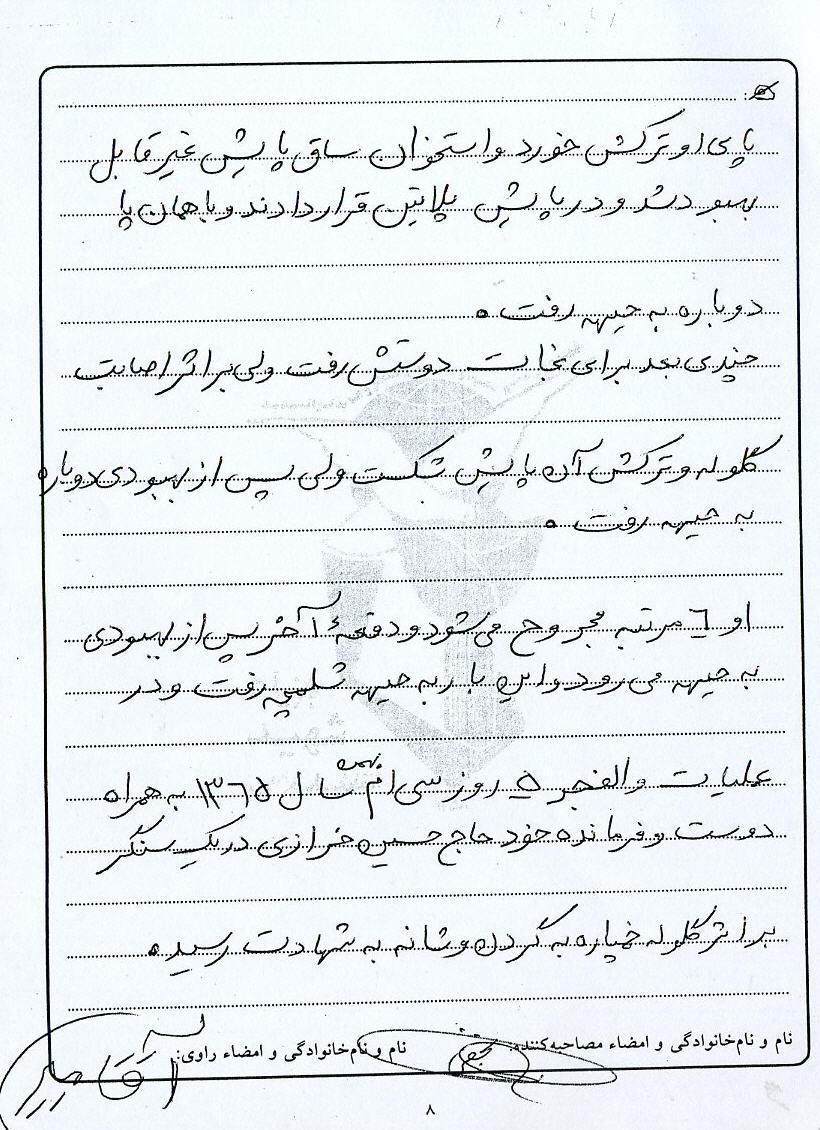 پای او ترکش خورد و استخوان ساق پایش غیر قابل
بهبود شد و در پایش پلاتین قرار دادند و با همان پا
دوباره به جبهه رفت.
چندی بعد برای نجات دوستش رفت ولی بر اثر اصابت
گلوله و ترکش آن پایش شکست ولی پس از بهبودی دوباره
به جبهه رفت.
او ٦ مرتبه مجروح می‌شود و دفعهٔ آخر پس از بهبودی
به جبهه می رود و این بار به جبهه شلمچه رفت و در
عملیات والفجر ۵ روز سی ام بهمن سال ۱۳٦۵ به همراه
دوست و فرمانده خود حاج حسین خرازی در یک سنگر
بر اثر گلوله خمپاره به گردن و شانه به شهادت رسید.
نام و نام‌خانوادگی و امضاء مصاحبه‌کننده: نام و نام‌خانوادگی و امضاء راوی:
۸